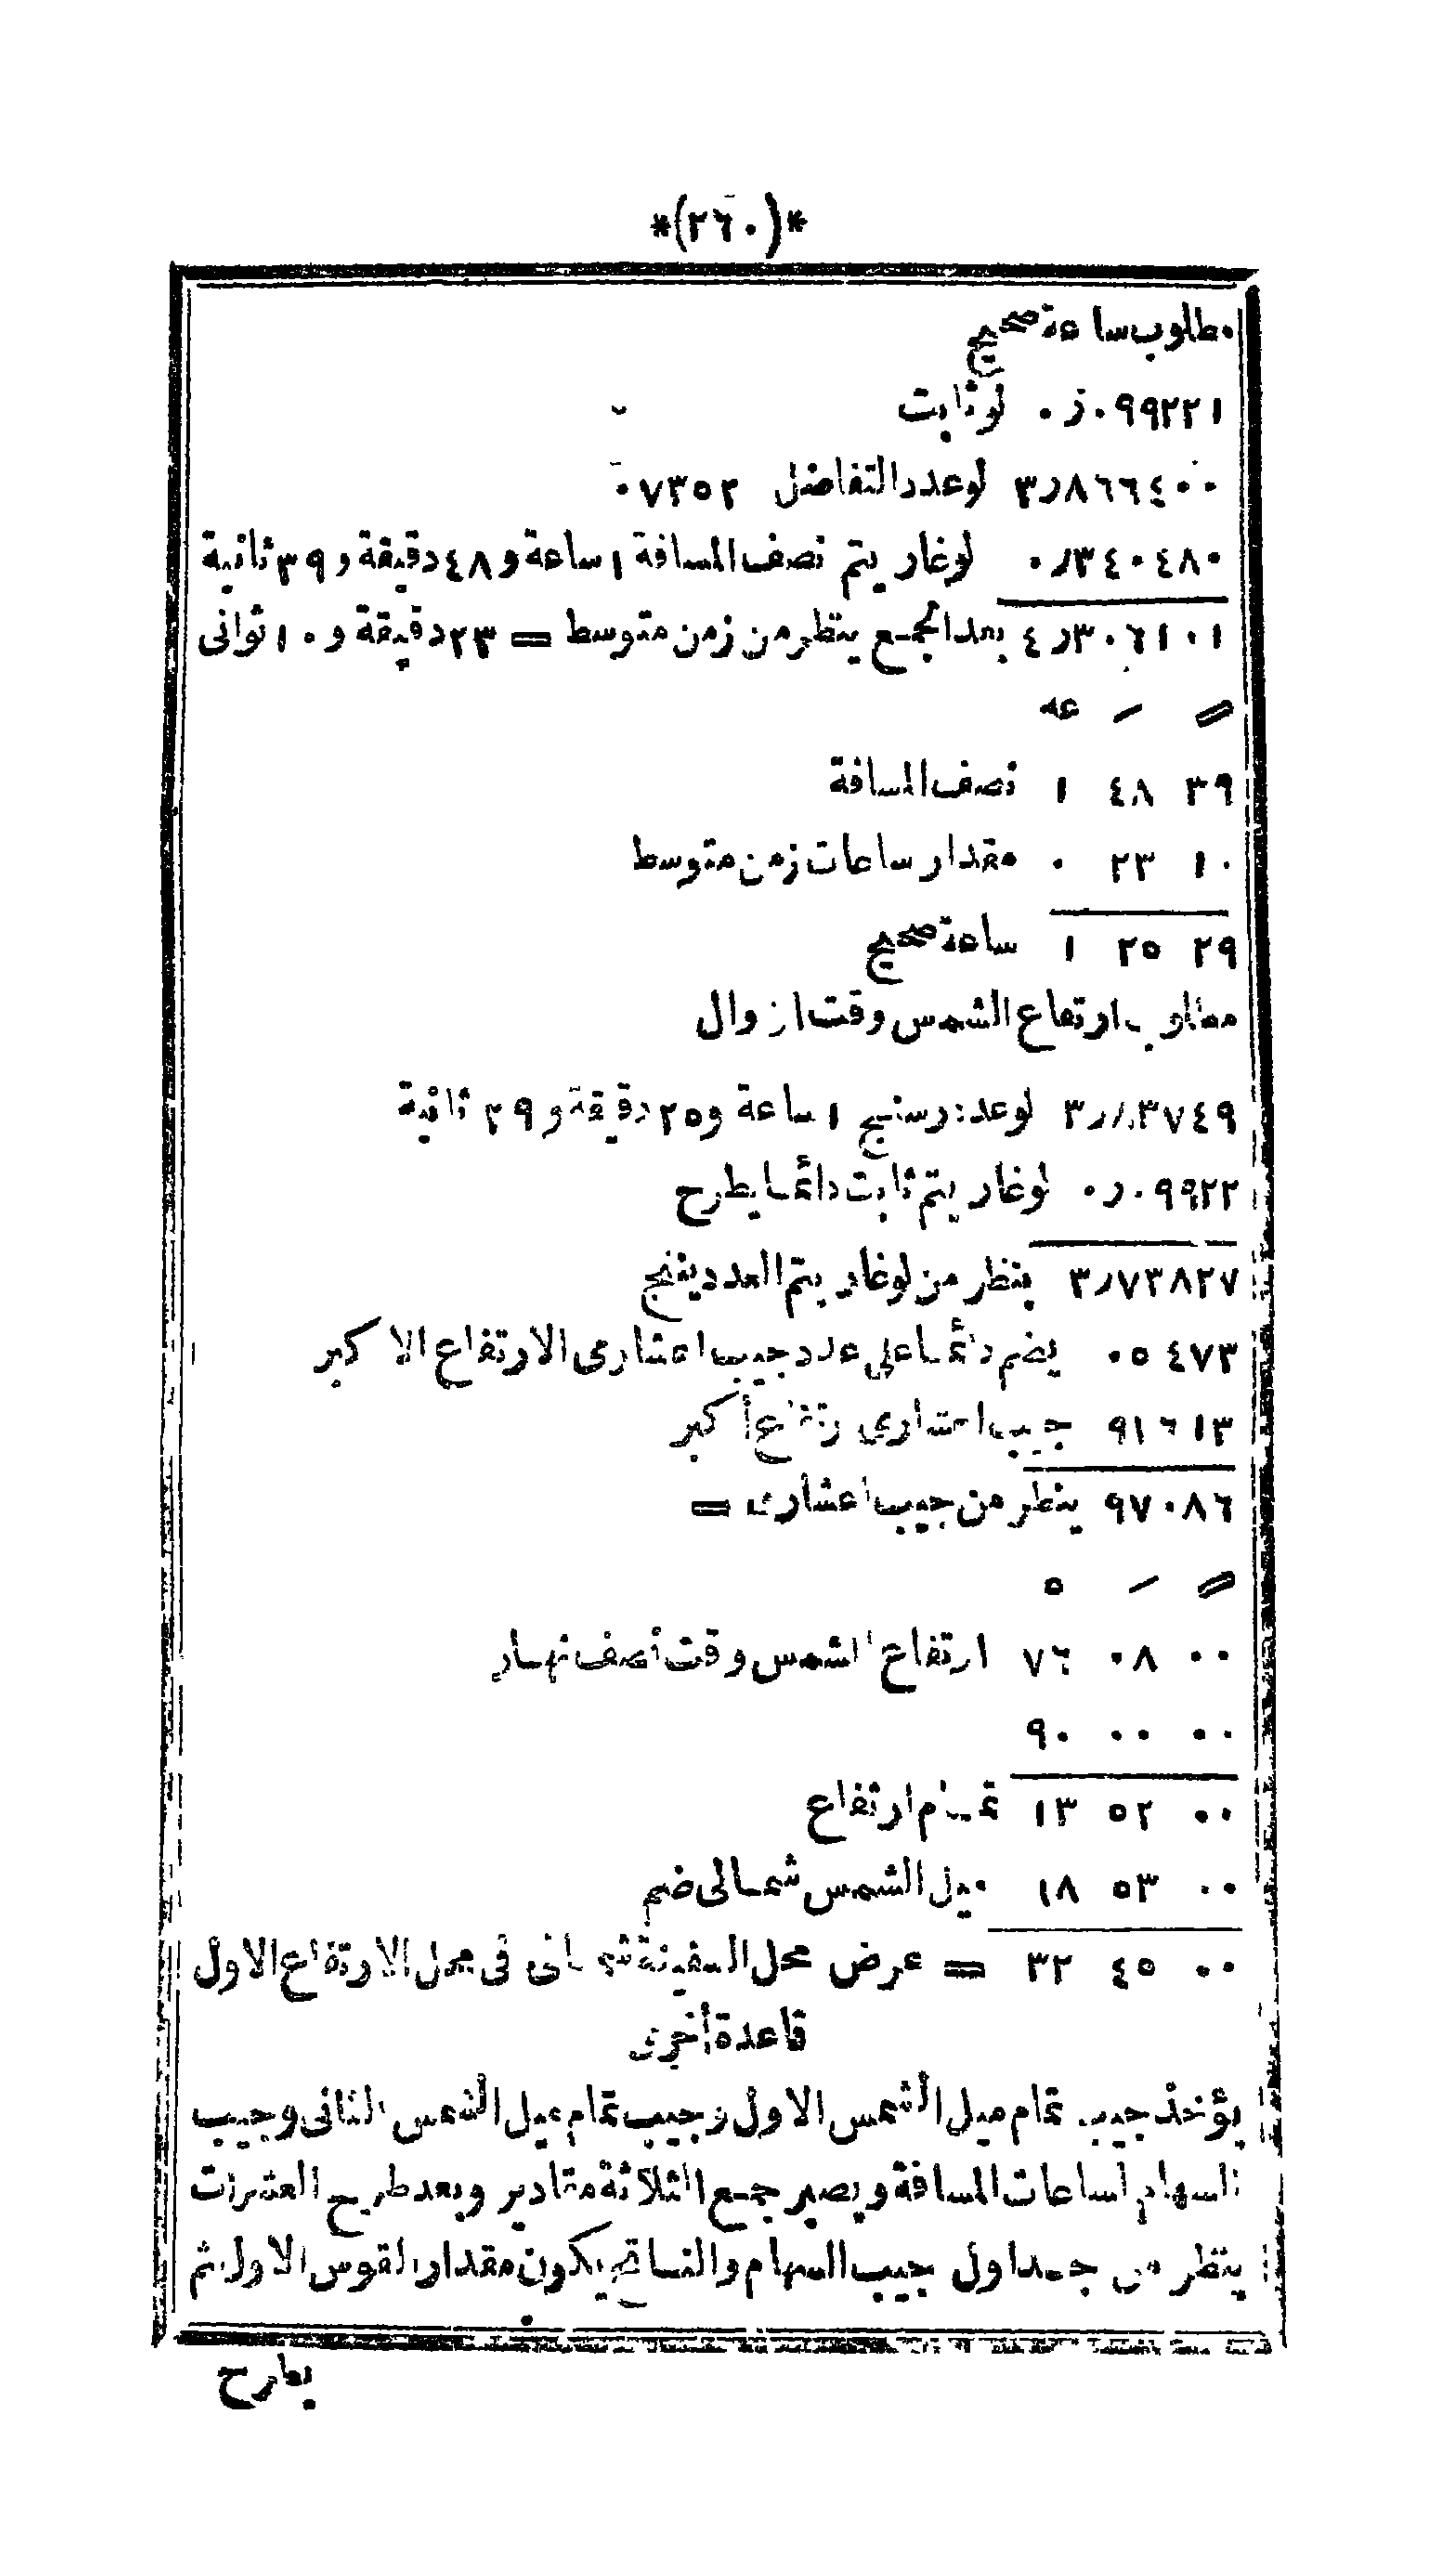 *(٢٦٠)*
مطلوب ساعة صحيح
٠ر٠٩٩٢٢١ لو ثابت
٣ر٨٦٦٤٠٠ لو عدد التفاضل ٠٧٣٥٢
٠ر٣٤٠٤٨٠ لوغاريتم نصف المسافة ١ ساعة و ٤٨ دقيقة و ٣٩ ثانية
٤ر٣٠٦١٠١ بعد الجمع ينظر من زمن متوسط = ٢٣ دقيقة و ١٠ ثوانى
عه
٣٩ ٤٨ ١ نصف المسافة
١٠ ٢٣ ٠ مقدار ساعات زمن متوسط
٢٩ ٢٥ ١ ساعة صحيح
مطلوب ارتفاع الشمس وقت ازوال
٣ر٨٣٧٤٩ لو عدد رسنيج ١ ساعة و ٢٥ دقيقة و ٢٩ ثانية
٠ر٠٩٩٢٢ لوغاريتم ثابت دائما يطرح
٣ر٧٣٨٢٧ ينظر من لوغاريتم العدد ينتج
٠٥٤٧٣ يضم دائما على عدد جيب اعشارى الارتفاع الاكبر
٩١٦١٣ جيب اعشارى ارتفاع أكبر
٩٧٠٨٦ ينظر من جيب اعشارى =
٠٠ ٠٨ ٧٦ ارتفاع الشمس وقت نصف نهار
٠٠ ٠٠ ٩٠
٠٠ ٥٢ ١٣ تمام ارتفاع
٠٠ ٥٣ ١٨ ميل الشمس شمالى ضم
٠٠ ٤٥ ٣٢ = عرض محل السفينة شمالى فى محل الارتفاع الاول
قاعدة أخرى
يؤخذ جيب تمام ميل الشمس الاول وجيب تمام ميل الشمس الثانى وجيب
السهام لساعات المسافة ويصير جمع الثلاثة مقادير وبعد طرح العشرات
ينظر من جداول جيب السهام والناتج يكون مقدار القوس الاول ثم
يطرح